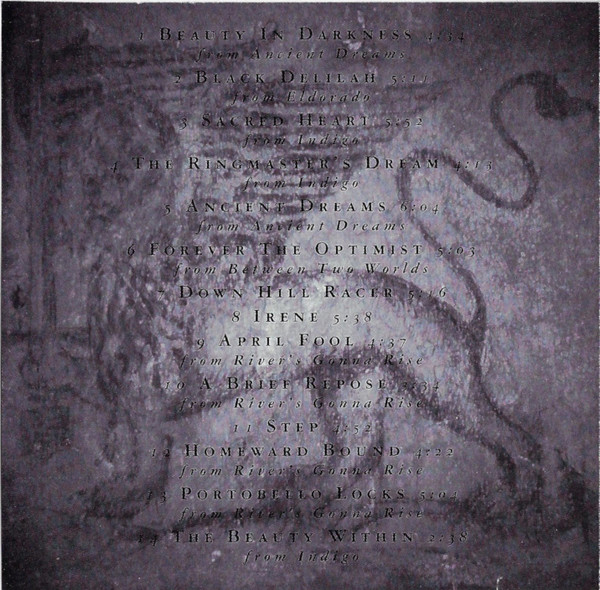 1 Beauty In Darkness 4:34
from Ancient Dreams
2 Black Delilah 5:11
from Eldorado
3 Sacred Heart 5:52
from Indigo
4 The Ringmaster's Dream 4:13
from Indigo
5 Ancient Dreams 6:04
from Ancient Dreams
6 Forever The Optimist 5:03
from Between Two Worlds
7 Down Hill Racer 5:16
8 Irene 5:38
9 April Fool 4:37
from River's Gonna Rise
10 A Brief Repose 3:34
from River's Gonna Rise
11 Step 4:52
12 Homeward Bound 4:22
from River's Gonna Rise
13 Portobello Locks 5:04
from River's Gonna Rise
14 The Beauty Within 2:38
from Indigo